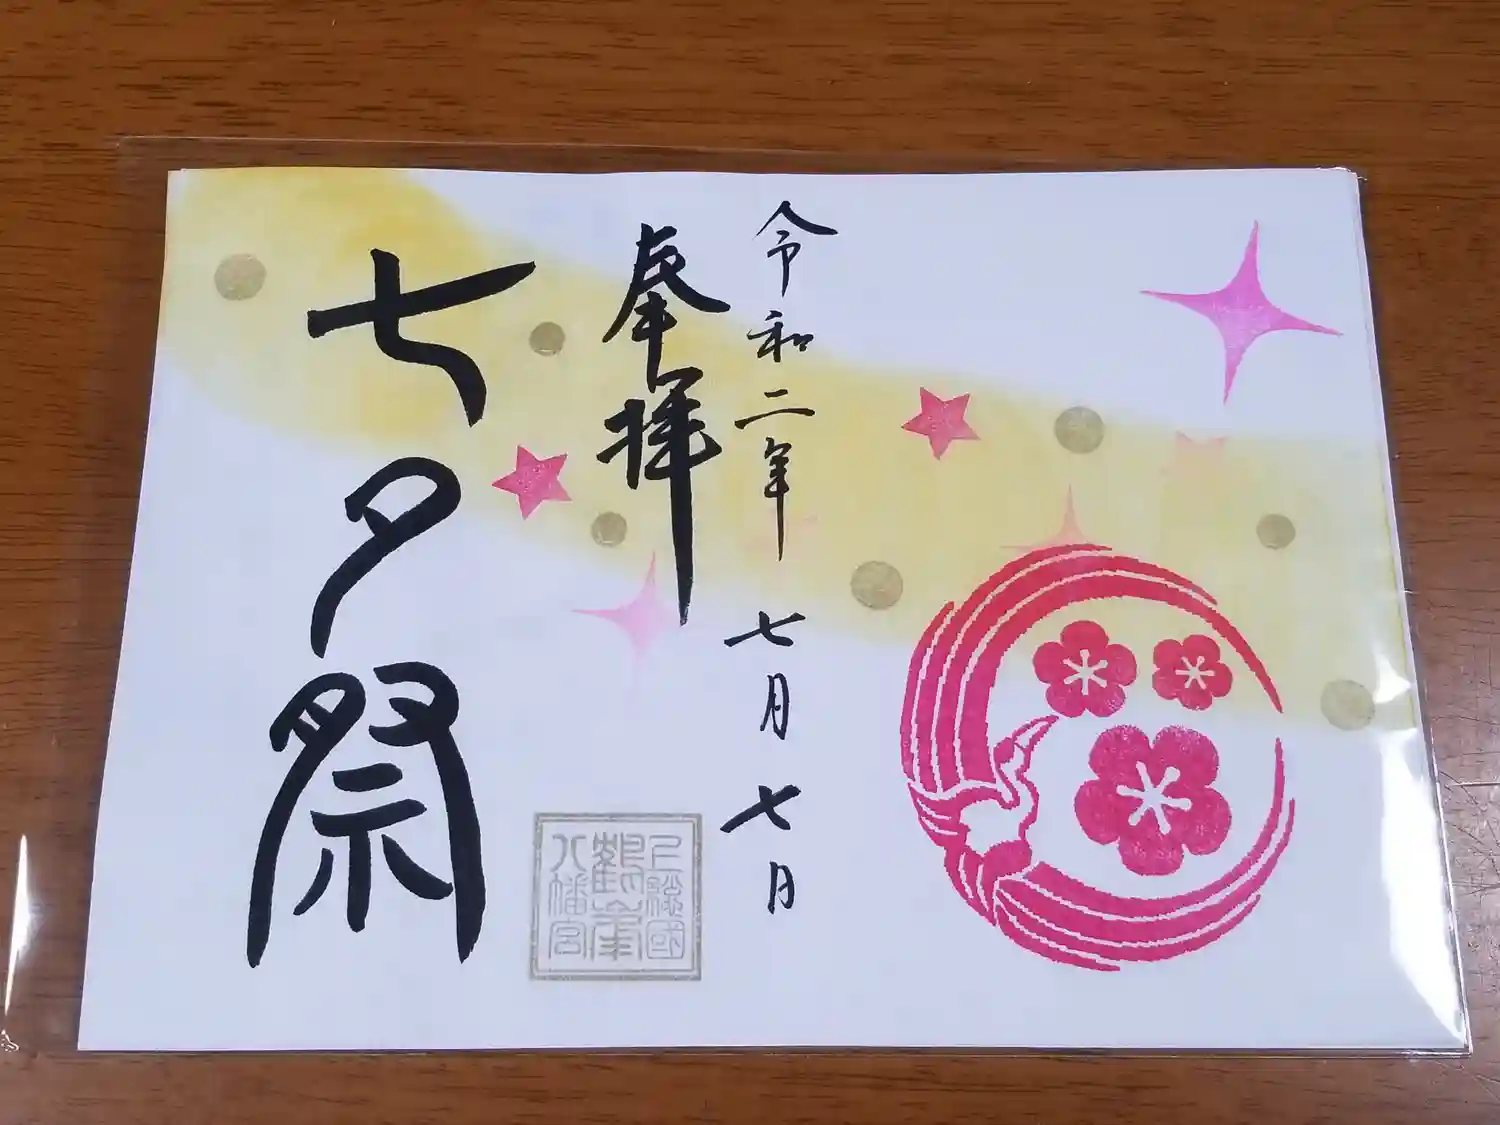 令和二年 七月 七日
奉拝
上総國
鶴峯
八幡宮
七夕祭